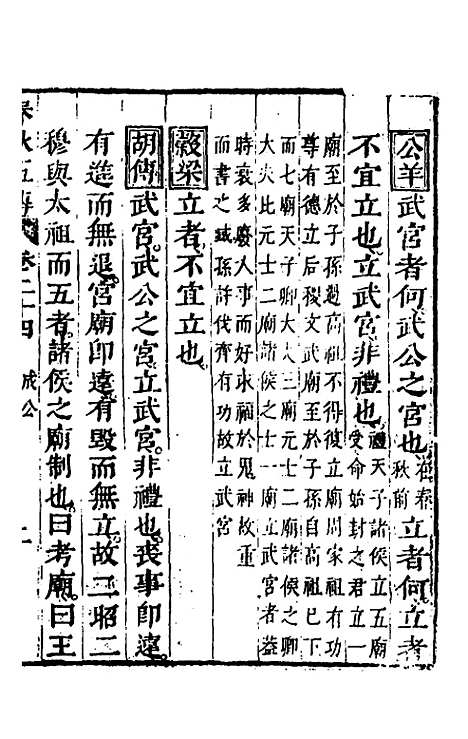 公羊武宮者何武公之宮也在春秋前立者何立者
不宜立也立武宮非禮也禮天子諸侯立五廟受命始封之君立一
廟至於子孫過高祖不得復立廟周家祖有功
尊有德立后稷文武廟至於子孫自高祖已下
而七廟天子卿大夫三廟元士二廟諸侯之卿
大夫比元士二廟諸侯之士一廟立武宮者蓋
時衰多廢人事而好求福於鬼神故重
而書之臧孫許伐齊有功故立武宮
穀梁立者不宜立也
胡傳武宮武公之宮立武宮非禮也喪事即遠
有進而無退宮廟即遠有毀而無立故二昭二
穆與太祖而五者諸侯之廟制也曰考廟曰王
春秋五傳卷二十四 成公